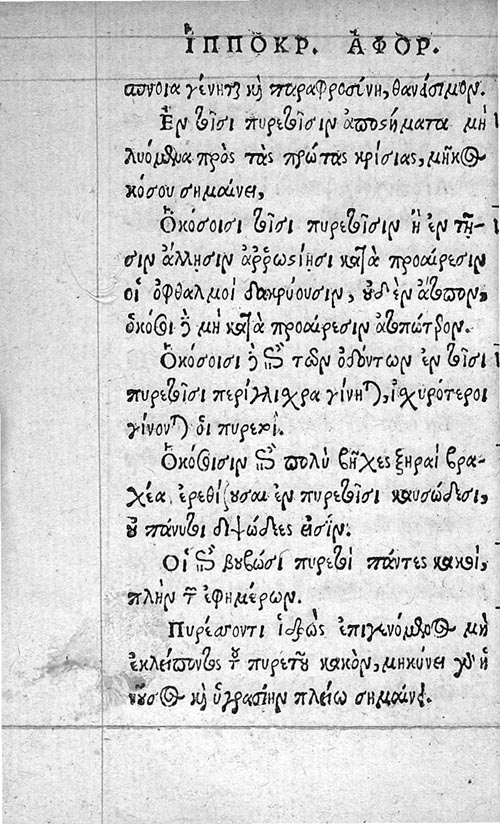 ἹΠΠΟΚΡ. ἈΦΟΡ.
πνοια γένηται καὶ παραφροσύνη, θανάσιμον.
Ἐν τοῖσι πυρετοῖσιν ἀποστήματα μὴ
λυόμενα πρὸς τὰς πρώτας κρίσιας, μῆκος
νόσου σημαίνει,
Ὁκόσοισι τοῖσι πυρετοῖσιν ἢ ἐν τῇ-
σιν ἄλλῃσιν ἀῤῥωστίῃσι κατὰ προαίρεσιν
οἱ ὀφθαλμοὶ δακρύουσιν, οὐδὲν ἄτοπον,
ὁκόσοι δὲ μὴ κατὰ προαίρεσιν ἀτοπώτερον.
Ὁκόσοισι δὲ ἐπὶ τῶν ὀδόντων ἐν τοῖσι
πυρετοῖσι περίγλισχρα γίνηται, ἰσχυρότεροι
γίνονται οἱ πυρετοί.
Ὁκόσοισιν ἐπὶ πολὺ βῆχες ξηραὶ βρα-
χέα ἐρεθίζουσαι ἐν πυρετοῖσι καυσώδεσι,
οὐ πάνυ τι διψώδεες εἰσίν.
Οἱ ἐπὶ βουβῶσι πυρετοὶ πάντες κακοὶ,
πλὴν τῶν ἐφημέρων.
Πυρέσσοντι ἱδρὼς ἐπιγενόμενος μὴ
ἐκλείποντος τοῦ πυρετοῦ κακὸν, μηκύνει γὰρ ἡ
νοῦσος καὶ ὑγρασίην πλείω σημαίνει.